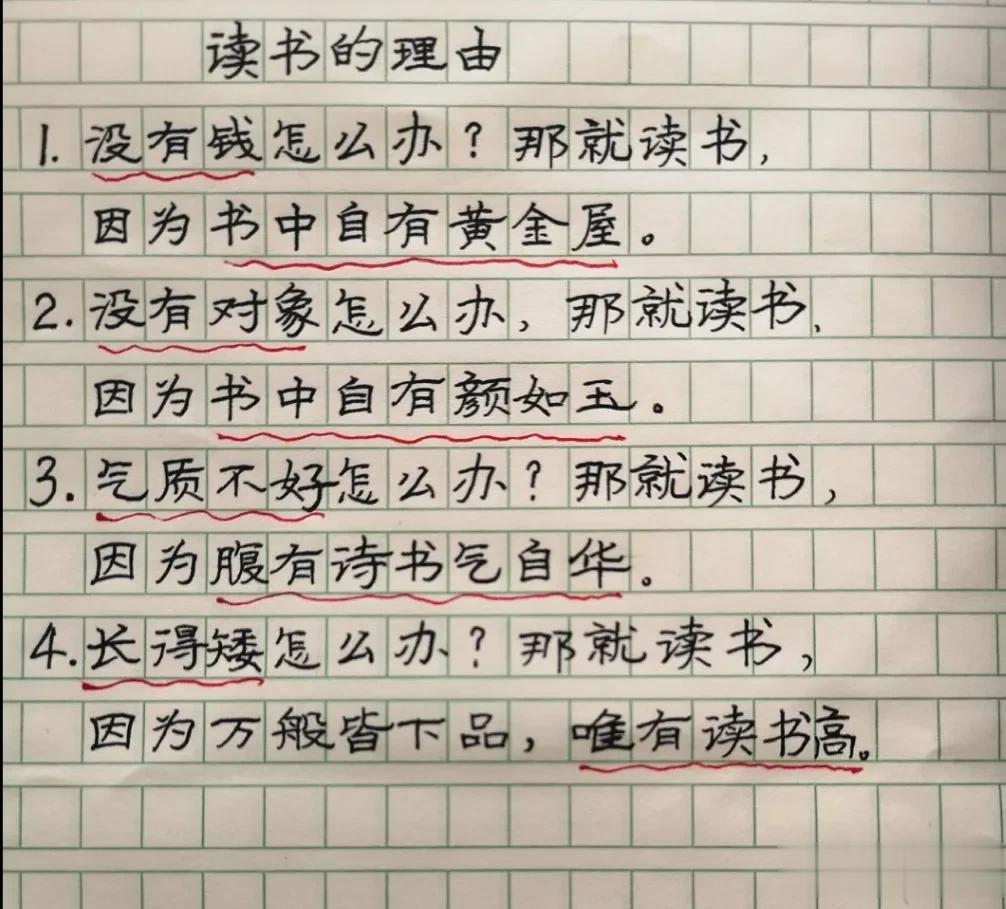 读书的理由
1. 没有钱怎么办？那就读书，
因为书中自有黄金屋。
2. 没有对象怎么办，那就读书，
因为书中自有颜如玉。
3. 气质不好怎么办？那就读书，
因为腹有诗书气自华。
4. 长得矮怎么办？那就读书，
因为万般皆下品，唯有读书高。